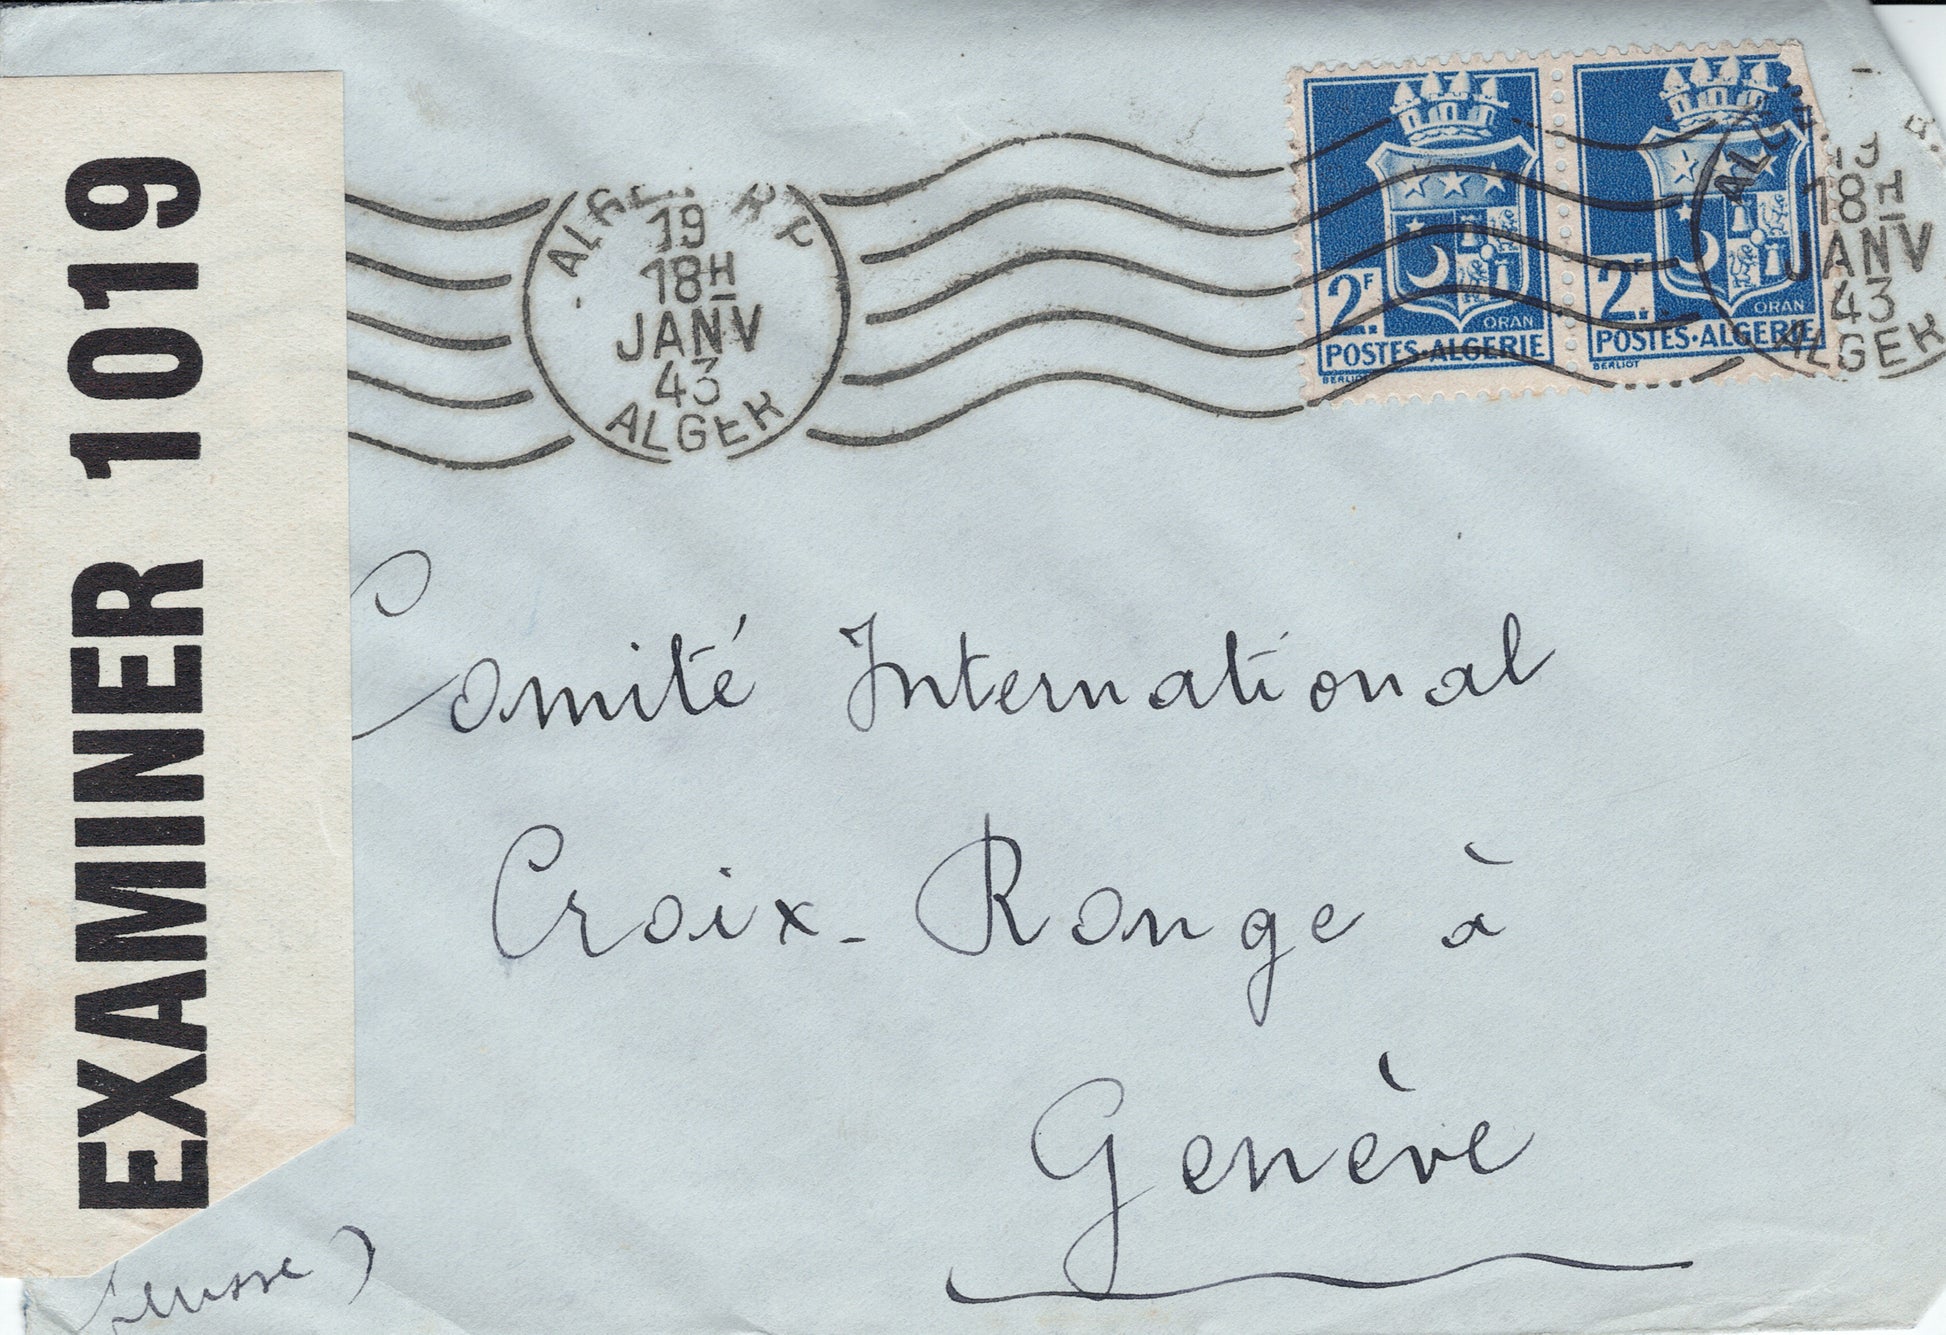 EXAMINER 1019
ALGER R.P.
19
18H
JANV
43
ALGER
2F.
ORAN
POSTES·ALGERIE
BERLIOT
2F.
ORAN
POSTES·ALGERIE
BERLIOT
ALGER
19
18H
JANV
43
ALGER
Comité International
Croix-Rouge à
Genève
Suisse)